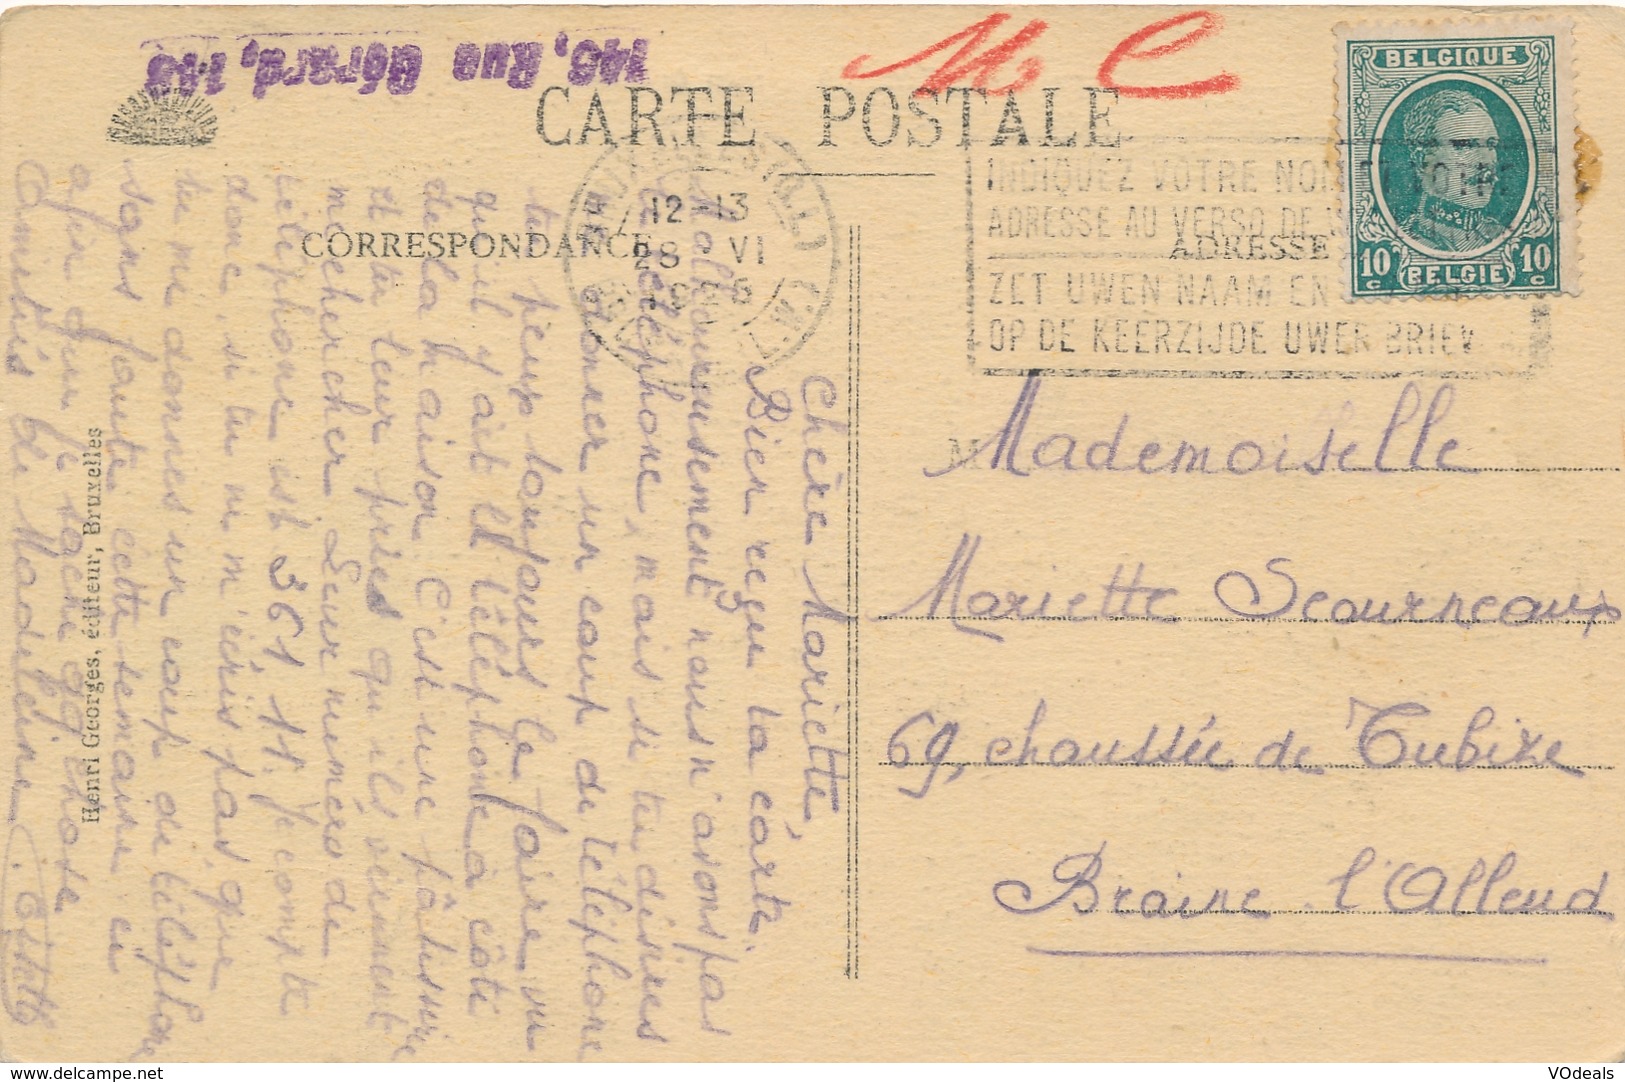 145, Rue Gérard, 145
M C
CARTE POSTALE
BELGIQUE
10c BELGIE 10c
INDIQUEZ VOTRE NOM
ADRESSE AU VERSO DE
ZET UWEN NAAM EN
OP DE KEERZIJDE UWER BRIEV
12-13
28 VI
CORRESPONDANCE
ADRESSE
Chère Mariette,
Bien reçu ta carte.
Malheureusement nous n'avons pas
le téléphone, mais si tu désires
me donner un coup de téléphone
tu peux toujours le faire vu
qu'il y ait le téléphone à côté
de la maison. C'est une pâtisserie
et tu leur pries qu'ils viennent
me chercher. Leur numéro de
téléphone est 361 11. Je compte
donc, si tu ne m'écris pas, que
tu me donnes un coup de téléphone
sans faute cette semaine ci
afin que je sache qq chose
Amitiés de Madeleine
Henri Georges, éditeur, Bruxelles
M
Mademoiselle
Mariette Scourneaux
69, chaussée de Tubize
Braine l'Alleud
VOdeals
www.delcampe.net